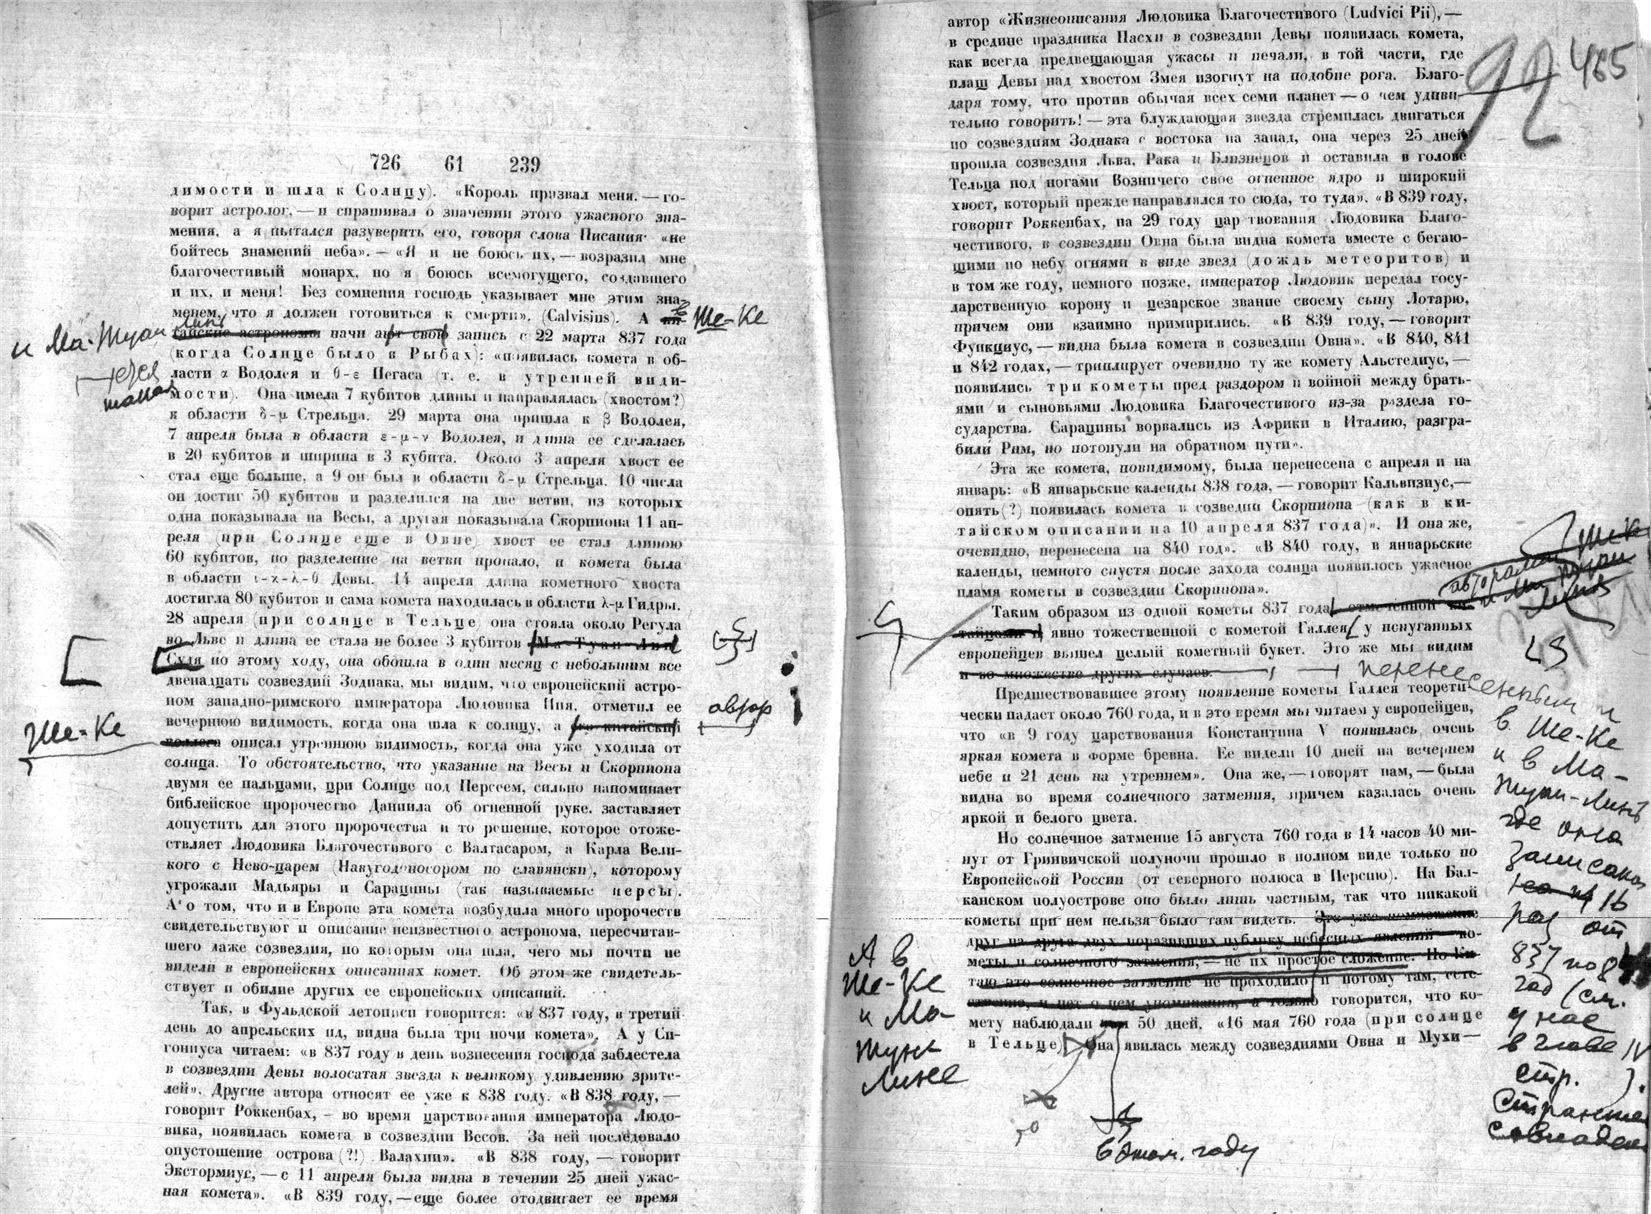 726 61 239
димости и шла к Солнцу). «Король призвал меня, — го-
ворит астролог, — и спрашивал о значении этого ужасного зна-
мения, а я пытался разуверить его, говоря слова Писания: «не
бойтесь знамений неба». — «Я и не боюсь их, — возразил мне
благочестивый монарх, но я боюсь всемогущего, создавшего
и их, и меня! Без сомнения господь указывает мне этим зна-
менем, что я должен готовиться к смерти». (Calvisius). А
в Ше-Ке
и Ма-Туан-Линь
тайские астрономы начи свою запись с 22 марта 837 года
(когда Солнце было в Рыбах): «появилась комета в об-
ласти α Водолея и θ-ε Пегаса (т. е. в утренней види-
мости). Она имела 7 кубитов длины и направлялась (хвостом?)
к области δ-μ Стрельца. 29 марта она пришла к β Водолея,
7 апреля была в области ε-μ-ν Водолея, и длина ее сделалась
в 20 кубитов и ширина в 3 кубита. Около 3 апреля хвост ее
стал еще больше, а 9 он был в области δ-μ Стрельца. 10 числа
он достиг 50 кубитов и разделился на две ветви, из которых
одна показывала на Весы, а другая показывала Скорпиона 11 ап-
реля (при Солнце еще в Овне) хвост ее стал длиною
60 кубитов, но разделение на ветви пропало, и комета была
в области ι-χ-λ-θ Девы. 14 апреля длина кометного хвоста
достигла 80 кубитов и сама комета находилась в области λ-μ Гидры.
28 апреля (при солнце в Тельце) она стояла около Регула
во Льве и длина ее стала не более 3 кубитов (Ма-Туан-Лин)
Судя по этому ходу, она обошла в один месяц с небольшим все
двенадцать созвездий Зодиака, мы видим, что европейский астро-
ном западно-римского императора Людовика Пия, отметил ее
вечернюю видимость, когда она шла к солнцу, а его китайский
автор
Ше-Ке
коллега описал утреннюю видимость, когда она уже уходила от
солнца. То обстоятельство, что указание на Весы и Скорпиона
двумя ее пальцами, при Солнце под Персеем, сильно напоминает
библейское пророчество Даниила об огненной руке, заставляет
допустить для этого пророчества и то решение, которое отоже-
ствляет Людовика Благочестивого с Валтасаром, а Карла Вели-
кого с Нево-царем (Навуходоносором по славянски), которому
угрожали Мадьяры и Сарацины (так называемые персы).
А о том, что и в Европе эта комета возбудила много пророчеств
свидетельствуют и описание неизвестного астронома, пересчитав-
шего даже созвездия, по которым она шла, чего мы почти не
видели в европейских описаниях комет. Об этом же свидетель-
ствует и обилие других ее европейских описаний.
Так, в Фульдской летописи говорится: «в 837 году, в третий
день до апрельских ид, видна была три ночи комета». А у Си-
гониуса читаем: «в 837 году в день вознесения господа заблестела
в созвездии Девы волосатая звезда к великому удивлению зрите-
лей». Другие автора относят ее уже к 838 году. «В 838 году, —
говорит Роккенбах, — во время царствования императора Людо-
вика, появилась комета в созвездии Весов. За ней последовало
опустошение острова (?!) Валахии». «В 838 году, — говорит
Экстормиус, — с 11 апреля была видна в течении 25 дней ужас-
ная комета». «В 839 году, — еще более отодвигает ее время
92 465
автор «Жизнеописания Людовика Благочестивого (Ludvici Pii), —
в средине праздника Пасхи в созвездии Девы появилась комета,
как всегда предвещающая ужасы и печали, в той части, где
плащ Девы над хвостом Змея изогнут на подобие рога. Благо-
даря тому, что против обычая всех семи планет — о чем удиви-
тельно говорить! — эта блуждающая звезда стремилась двигаться
по созвездиям Зодиака с востока на запад, она через 25 дней
прошла созвездия Льва, Рака и Близнецов и оставила в голове
Тельца под ногами Возничего свое огненное ядро и широкий
хвост, который прежде направлялся то сюда, то туда». «В 839 году,
говорит Роккенбах, на 29 году царствования Людовика Благо-
честивого, в созвездии Овна была видна комета вместе с бегаю-
щими по небу огнями в виде звезд (дождь метеоритов) и
в том же году, немного позже, император Людовик передал госу-
дарственную корону и цезарское звание своему сыну Лотарю,
причем они взаимно примирились. «В 839 году, — говорит
Функциус, — видна была комета в созвездии Овна». «В 840, 841
и 842 годах, — триплирует очевидно ту же комету Альстедиус, —
появились три кометы пред раздором и войной между брать-
ями и сыновьями Людовика Благочестивого из-за раздела го-
сударства. Сарацины ворвались из Африки в Италию, разгра-
били Рим, но потонули на обратном пути».
Эта же комета, повидимому, была перенесена с апреля и на
январь: «В январьские календы 838 года, — говорит Кальвизиус, —
опять (?) появилась комета в созведии Скорпиона (как в ки-
тайском описании на 10 апреля 837 года)». И она же,
очевидно, перенесена на 840 год». «В 840 году, в январьские
календы, немного спустя после захода солнца появилось ужасное
пламя кометы в созвездии Скорпиона».
Таким образом из одной кометы 837 года, отмеченной ки-
тайцами и явно тожественной с кометой Галлея, у испуганных
европейцев вышел целый кометный букет. Это же мы видим
и во множестве других случаев.
Предшествовавшее этому появление кометы Галлея теорети-
чески падает около 760 года, и в это время мы читаем у европейцев,
что «в 9 году царствования Константина V появилась очень
яркая комета в форме бревна. Ее видели 10 дней на вечернем
небе и 21 день на утреннем». Она же, — говорят нам, — была
видна во время солнечного затмения, причем казалась очень
яркой и белого цвета.
Но солнечное затмение 15 августа 760 года в 14 часов 40 ми-
нут от Гринвичской полуночи прошло в полном виде только по
Европейской России (от северного полюса в Персию). На Бал-
канском полуострове оно было лишь частным, так что никакой
кометы при нем нельзя было там видеть. Это уже помножение
друг на друга двух поразивших публику небесных явлений — ко-
меты и солнечного затмения, — не их простое сложение. По Ки-
таю это солнечное затмение не проходило и потому там, есте-
ственно, и нет о нем упоминания, а только говорится, что ко-
мету наблюдали 50 дней, «16 мая 760 года (при солнце
в Тельце) Она явилась между созвездиями Овна и Мухи —
перенесенным и
в Ше-Ке
и в Ма-
Туан-Линь
где она
записана
16
раз от
837 по
год (см.
у нас
в главе IV
стр. ).
Странное
совпаден
А в
Ше-Ке
и Ма-
Туан
Лине
в этом году